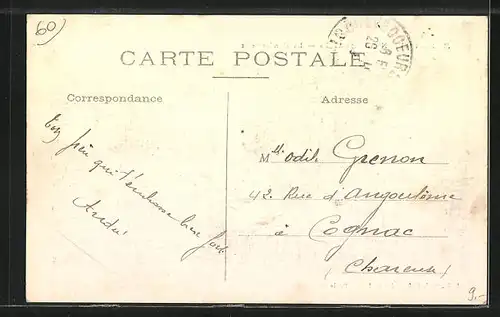 60
CARTE POSTALE
Correspondance
Adresse
Ton frère qui t'embrasse bien fort
André
Mlle Odile Grenon
42. Rue d'Angoulême
à Cognac
Charente
9.-